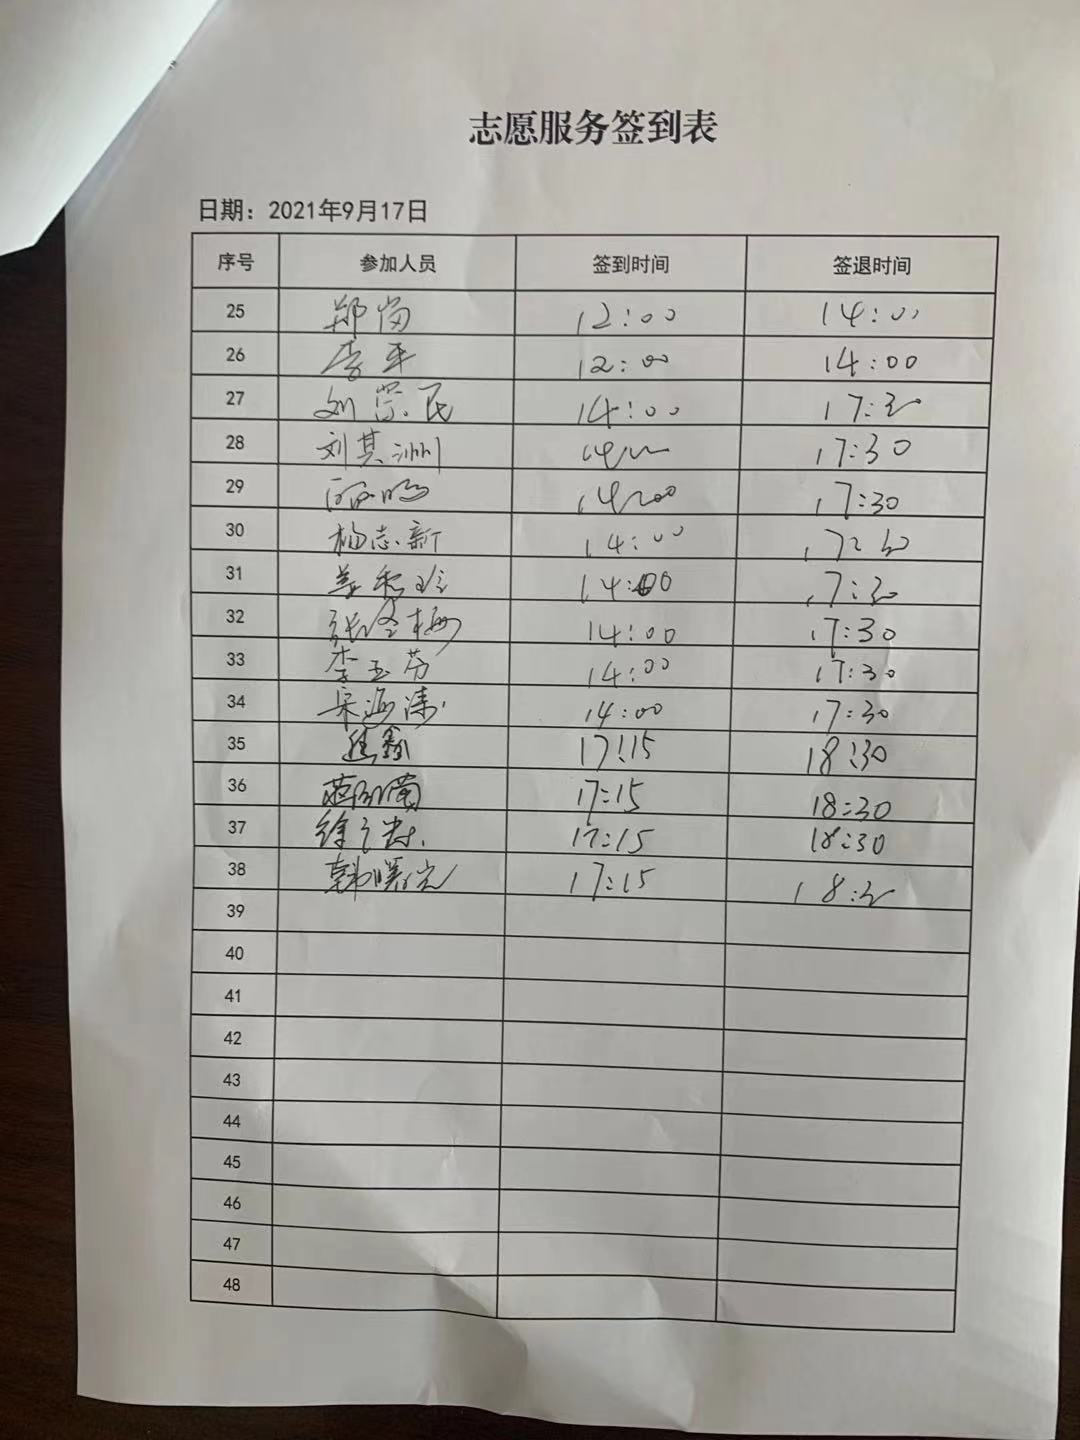 志愿服务签到表
日期：2021年9月17日
序号 参加人员 签到时间 签退时间
25 郑岗 12:00 14:00
26 李平 12:00 14:00
27 刘崇民 14:00 17:30
28 刘其洲 14:00 17:30
29 14:00 17:30
30 杨志新 14:00 17:30
31 14:00 17:30
32 张冬梅 14:00 17:30
33 李玉芬 14:00 17:30
34 宋海涛 14:00 17:30
35 17:15 18:30
36 17:15 18:30
37 徐 17:15 18:30
38 韩曙光 17:15 18:30
39
40
41
42
43
44
45
46
47
48